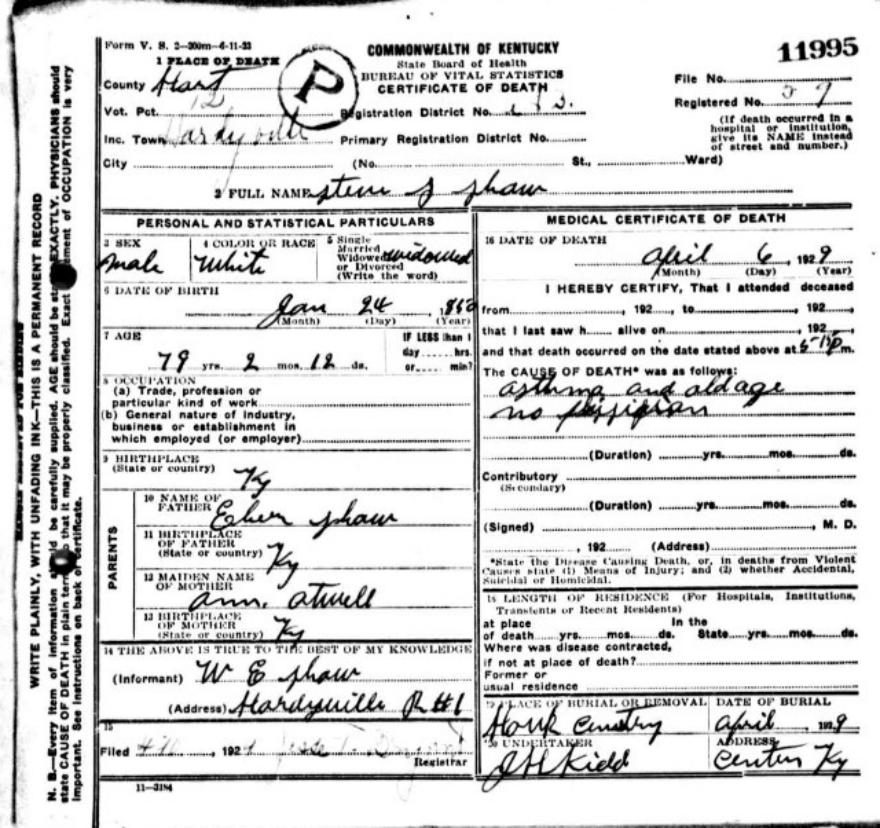 Form V. S. 2—300m—6-11-23
1 PLACE OF DEATH
County Hart
Vot. Pct. 12
Inc. Town Hardyville
City
P
COMMONWEALTH OF KENTUCKY
State Board of Health
BUREAU OF VITAL STATISTICS
CERTIFICATE OF DEATH
Registration District No.
Primary Registration District No.
(No. St., Ward)
11995
File No.
Registered No. 59
(If death occurred in a
hospital or institution,
give its NAME instead
of street and number.)
2 FULL NAME J Shaw
PERSONAL AND STATISTICAL PARTICULARS
3 SEX
male
4 COLOR OR RACE
White
5 Single
Married
Widowed
or Divorced
(Write the word)
widowed
6 DATE OF BIRTH
Jan 24, 1850
(Month) (Day) (Year)
7 AGE
79 yrs. 2 mos. 12 ds.
IF LESS than 1
day hrs.
or min?
8 OCCUPATION
(a) Trade, profession or
particular kind of work
(b) General nature of Industry,
business or establishment in
which employed (or employer)
9 BIRTHPLACE
(State or country)
Ky
PARENTS
10 NAME OF
FATHER
Shaw
11 BIRTHPLACE
OF FATHER
(State or country)
Ky
12 MAIDEN NAME
OF MOTHER
ann. atwell
13 BIRTHPLACE
OF MOTHER
(State or country)
Ky
14 THE ABOVE IS TRUE TO THE BEST OF MY KNOWLEDGE
(Informant) W E Shaw
(Address) Hardyville R #1
15
Filed , 192
Registrar
11—3184
MEDICAL CERTIFICATE OF DEATH
16 DATE OF DEATH
April 6, 1929
(Month) (Day) (Year)
I HEREBY CERTIFY, That I attended deceased
from , 192 , to , 192 ,
that I last saw h alive on , 192 ,
and that death occurred on the date stated above at m.
The CAUSE OF DEATH* was as follows:
asthma and old age
no
(Duration) yrs. mos. ds.
Contributory
(Secondary)
(Duration) yrs. mos. ds.
(Signed) , M. D.
, 192 (Address)
*State the Disease Causing Death, or, in deaths from Violent
Causes state (1) Means of Injury; and (2) whether Accidental,
Suicidal or Homicidal.
18 LENGTH OF RESIDENCE (For Hospitals, Institutions,
Transients or Recent Residents)
at place In the
of death yrs. mos. ds. State yrs. mos. ds.
Where was disease contracted,
if not at place of death?
Former or
usual residence
19 PLACE OF BURIAL OR REMOVAL
DATE OF BURIAL
April , 1929
20 UNDERTAKER
Kidd
ADDRESS
Center Ky
WRITE PLAINLY, WITH UNFADING INK—THIS IS A PERMANENT RECORD
N. B.—Every item of information should be carefully supplied. AGE should be stated EXACTLY. PHYSICIANS should
state CAUSE OF DEATH in plain terms so that it may be properly classified. Exact statement of OCCUPATION is very
important. See instructions on back of certificate.